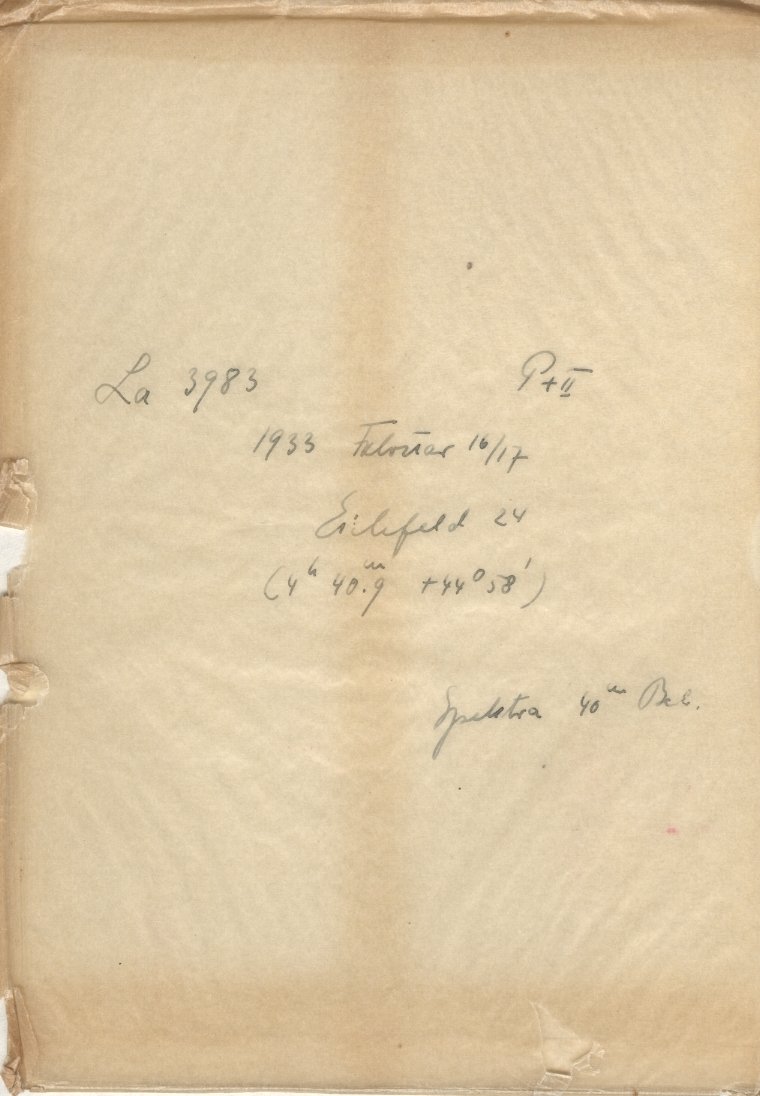 La 3983 P+II
1933 Februar 16/17
Eichfeld 24
(4ʰ 40.ᵐ9 +44° 58')
Spektra 40ᵐ Bel.